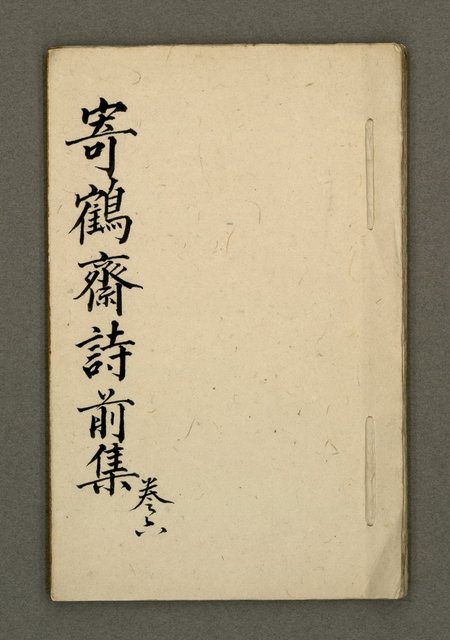 寄鶴齋詩前集
卷六